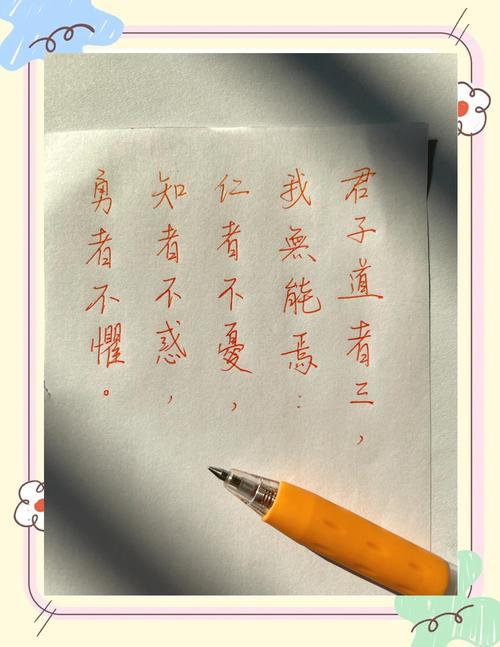 君子道者三，
我無能焉：
仁者不憂，
知者不惑，
勇者不懼。